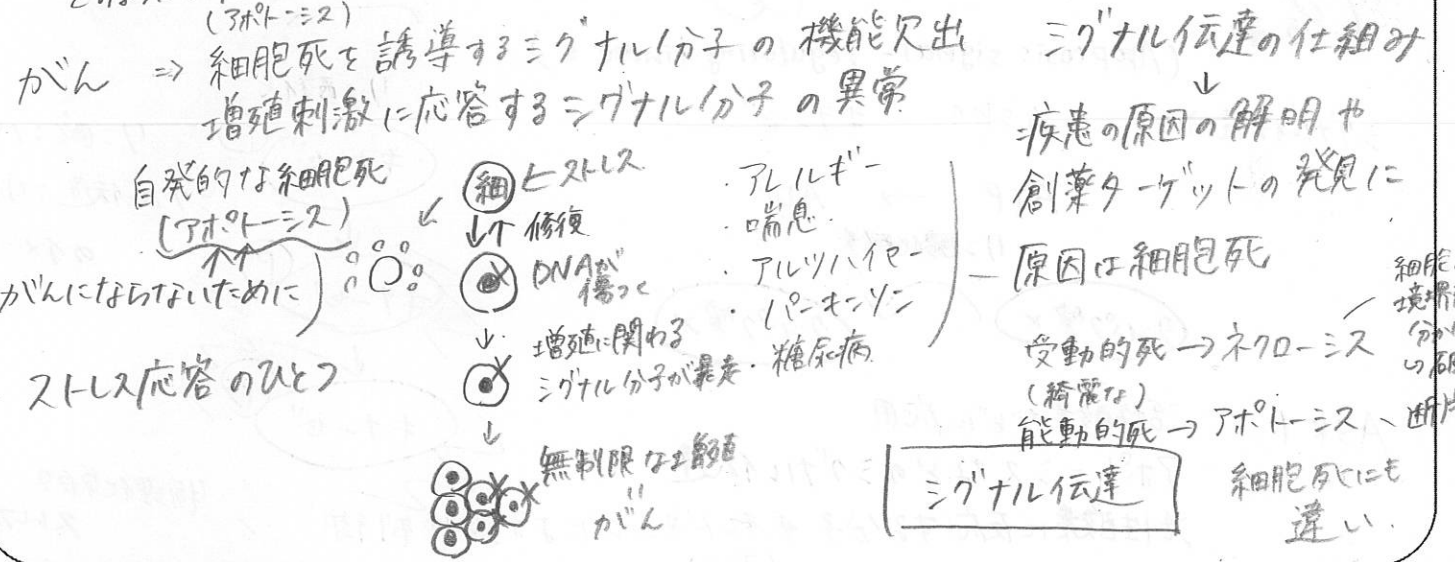 (アポトーシス)
がん ⇒ 細胞死を誘導するシグナル分子の機能欠出
増殖刺激に応答するシグナル分子の異常
自発的な細胞死
(アポトーシス)
がんにならないために
ストレス応答のひとつ
細 ←ストレス
↓↑ 修復
DNAが
傷つく
↓ 増殖に関わる
シグナル分子が暴走
↓
無制限な増殖
〃
がん
・アレルギー
・喘息
・アルツハイマー
・パーキンソン
・糖尿病
シグナル伝達の仕組み
↓
疾患の原因の解明や
創薬ターゲットの発見に
原因は細胞死
受動的死→ネクローシス
(綺麗な)
能動的死→アポトーシス、断片
細胞
境界
シグナル伝達
細胞死にも
違い.